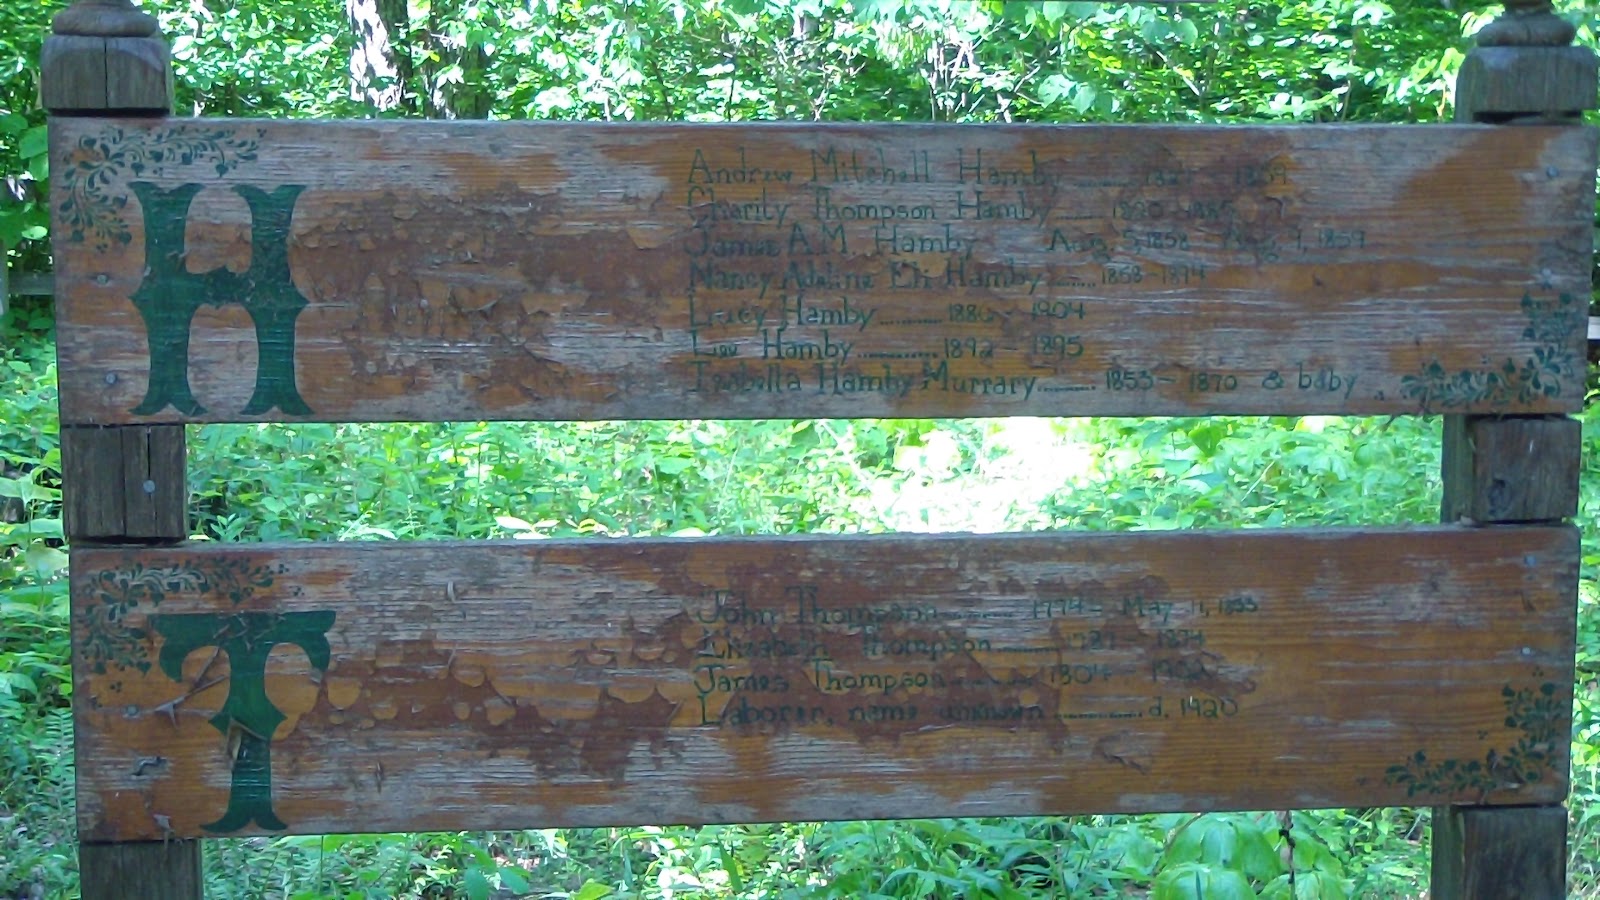 H
Andrew Mitchell Hamby
Charity Thompson Hamby
James A.M. Hamby Aug. 5, 1858 - Aug. 9, 1859
Nancy Adaline Eli Hamby ....... 1868-1894
Lucy Hamby ........... - 1904
Lou Hamby ............ 1892 - 1895
Isabella Hamby Murrary......... 1853 - 1870 & baby
T
John Thompson ......... 1794 - May 11, 1855
Elizabeth Thompson ......... - 1874
James Thompson
Laborer, name unknown ............. d. 1920